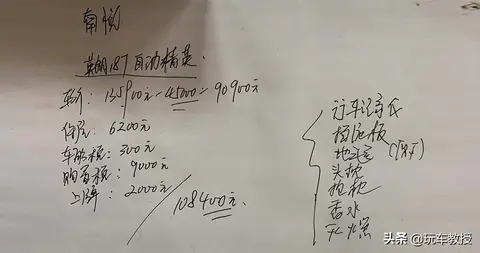 南悦
英朗187自动精英.
车价: 135900元-45000=90900元
保险: 6200元
车船税: 300元
购置税: 9000元
上牌: 2000元
108400元.
行车记录仪
挡泥板
地毯
头枕
抱枕
香水
灭火器
头条 @玩车教授